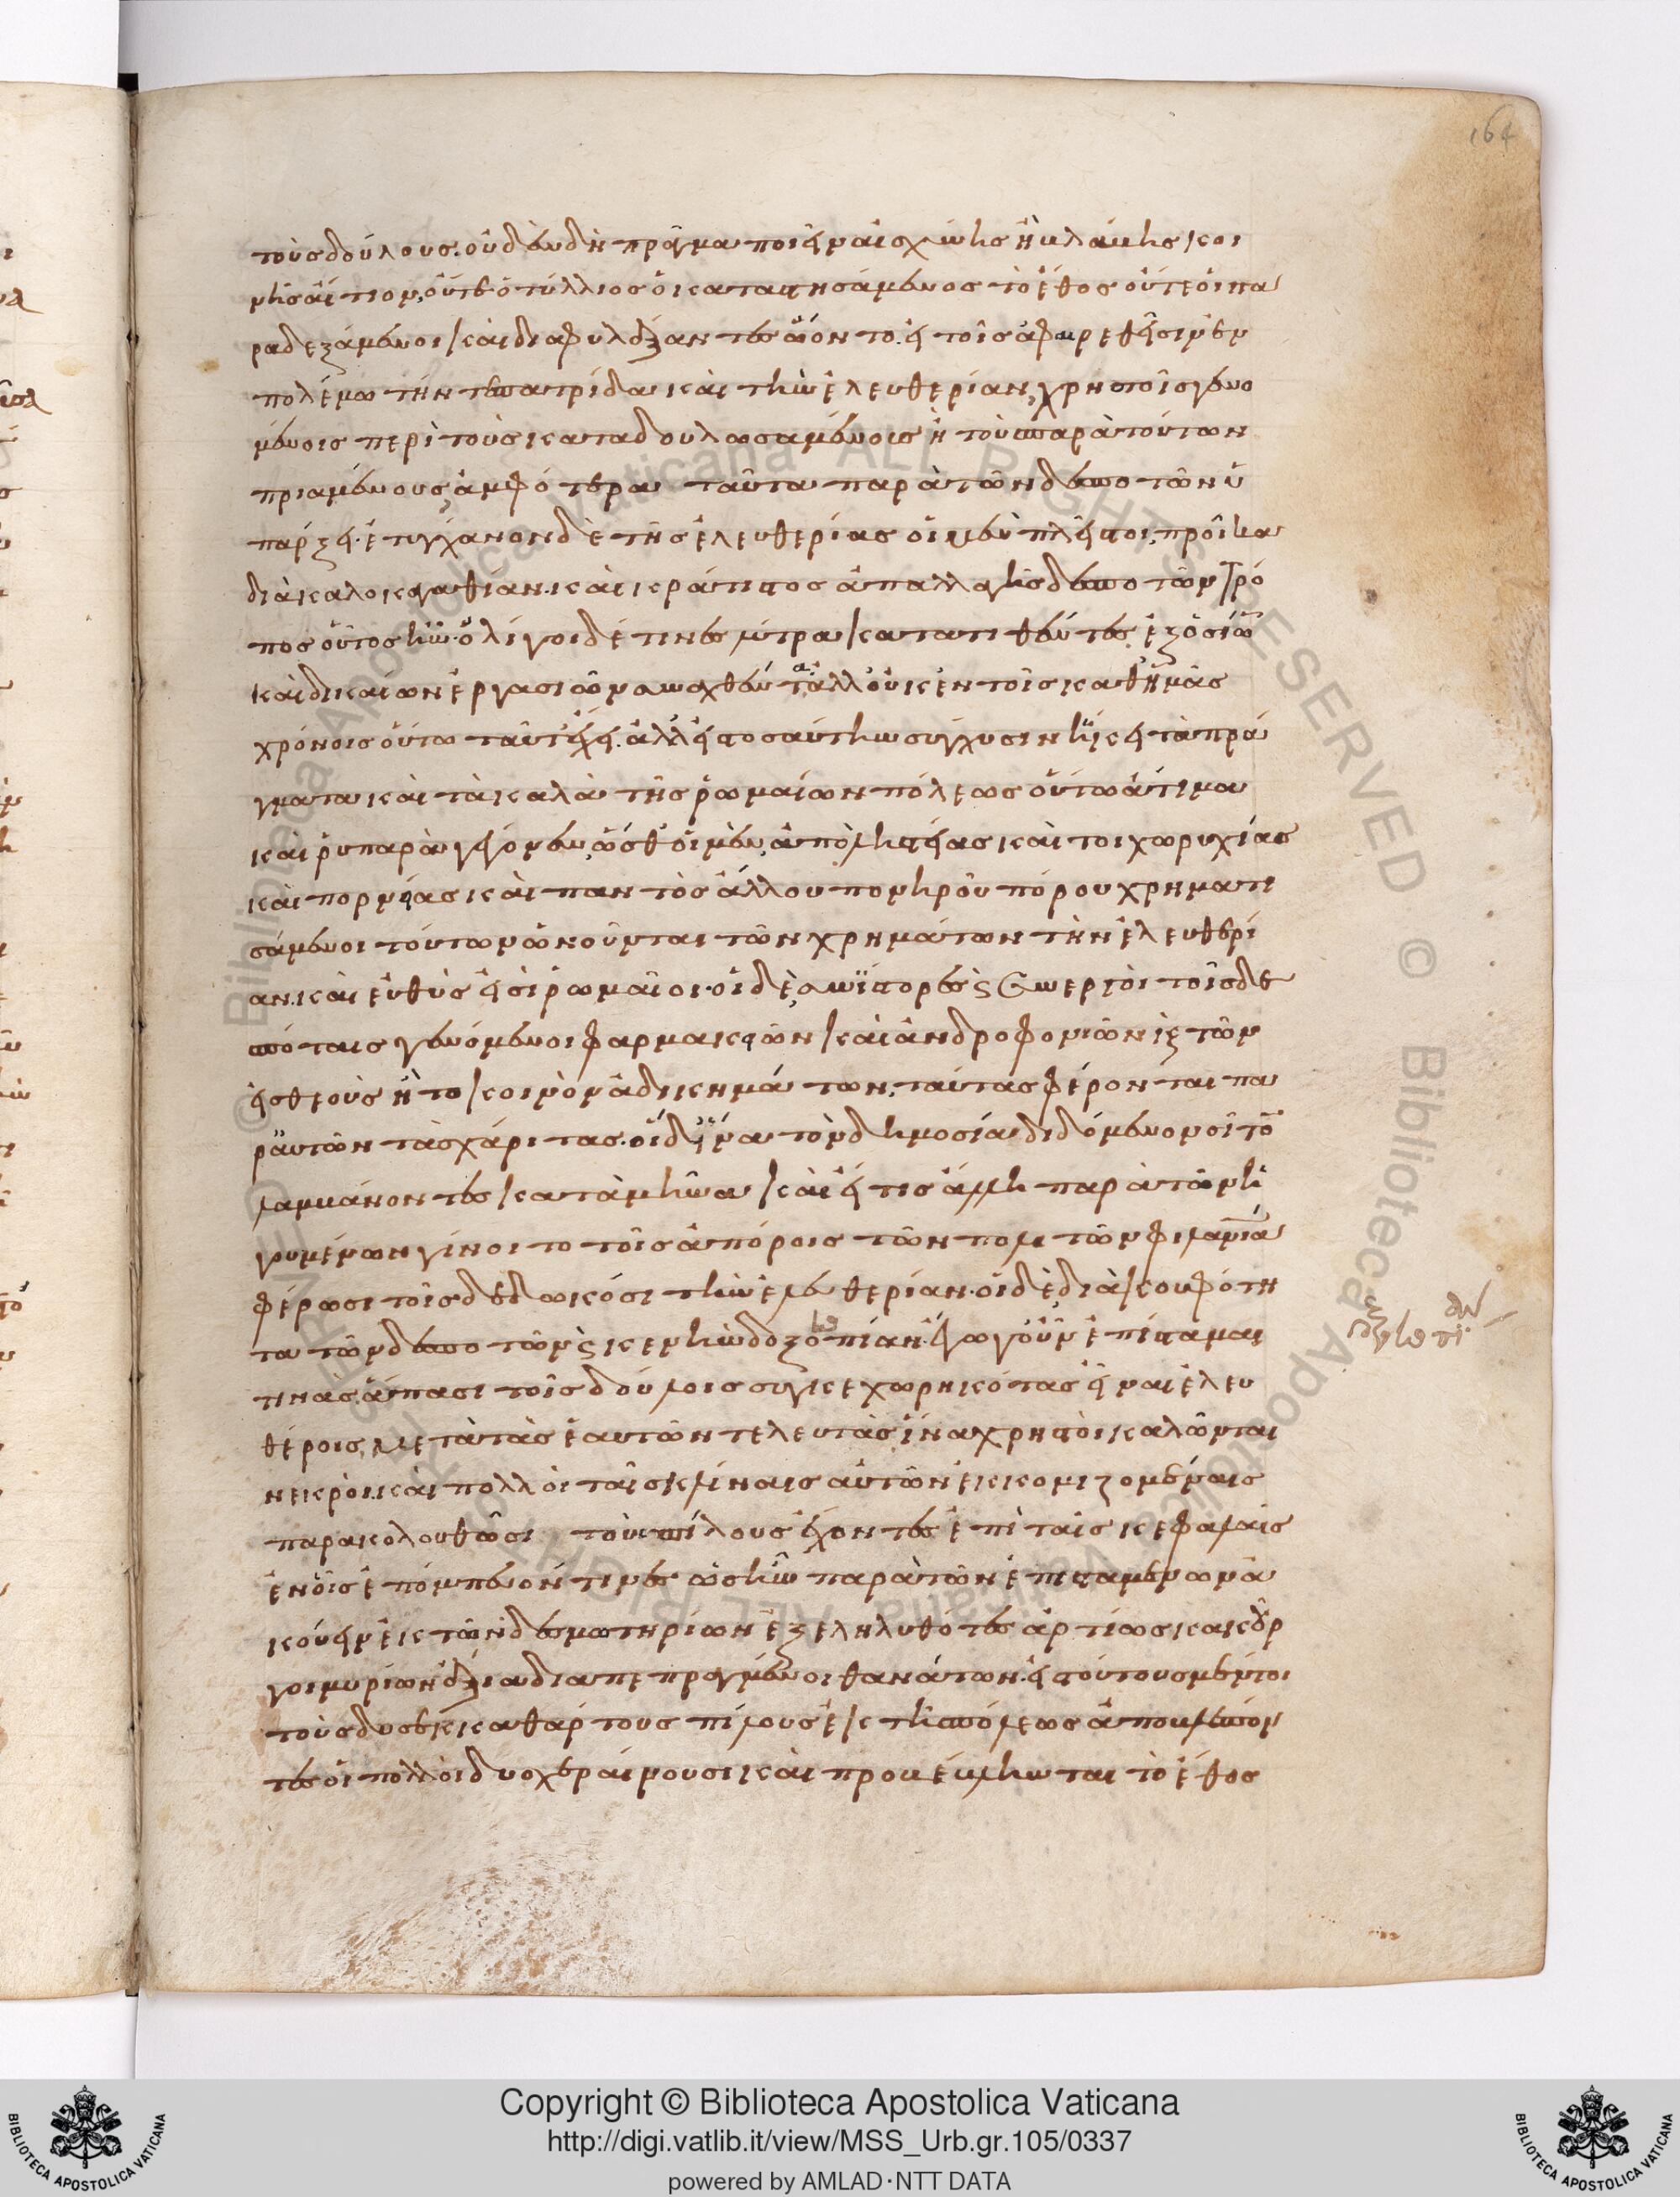 τοὺς δούλους. οὐδὲν δὴ πρᾶγμα ποιεῖν αἰσχύνης ἢ βλάβης κοι
νῆς αἴτιον, οὔτε ὁ τύλλιος ὁ καταστησάμενος τὸ ἔθος οὔτε οἱ πα
ραδεξάμενοι καὶ διαφυλάξαντες ᾤοντο. εἰ τοῖς ἀφαιρεθεῖσιν ἐν
πολέμω τήν τε πατρίδα καὶ τὴν ἐλευθερίαν, χρηστοῖς γενο
μένοις περὶ τοὺς καταδουλωσαμένους ἢ τοὺς παρὰ τούτων
πριαμένους, ἀμφότερα ταῦτα παρὰ τῶν δεσποτῶν ὑ
πάρξει. ἐτύγχανον δὲ τῆς ἐλευθερίας οἱ μὲν πλεῖστοι, προῖκα
διὰ καλοκαγαθίαν. καὶ κράτιστος ἀπαλλαγῆς δεσποτῶν τρό
πος οὗτος ἦν. ὀλίγοι δέ τινες λύτρα κατατιθέντες ἐξ ὁσίων
καὶ δικαίων ἐργασιῶν συναχθέντα ἀλλ' οὐκ ἐν τοῖς καθ' ἡμᾶς
χρόνοις οὕτω ταῦτ' ἔχει. ἀλλ' εἰς τοσαύτην σύγχυσιν ἥκει τὰ πρά
γματα καὶ τὰ καλὰ τῆς ῥωμαίων πόλεως οὕτω ἄτιμα
καὶ ῥυπαρὰ γέγονεν, ὥσθ' οἱ μὲν, ἀπὸ ληστείας καὶ τοιχωρυχίας
καὶ πορνείας καὶ παντὸς ἄλλου πονηροῦ πόρου χρηματι
σάμενοι τούτων ὠνοῦνται τῶν χρημάτων τὴν ἐλευθερί
αν. καὶ εὐθύς εἰσι ῥωμαῖοι. οἱ δὲ συνίστορες ϛ συνεργοὶ τοῖς δε
σπόταις γενόμενοι φαρμακειῶν καὶ ἀνδροφονιῶν κ̀ τῶν
εἰς θεοὺς ἢ τὸ κοινὸν ἀδικημάτων, ταύτας φέρονται πα
ρ' αὐτῶν τὰς χάριτας. οἱ δ' ἵνα τὸν δημοσία διδόμενον σῖτον
λαμβάνοντες κατὰ μῆνα καὶ εἴ τις ἄλλη παρὰ τῶν ἡ
γουμένων γίνοιτο τοῖς ἀπόροις τῶν πολιτῶν φιλανθρωπία
φέρωσι τοῖς δεδωκόσι τὴν ἐλευθερίαν. οἱ δὲ διὰ κουφότη
τα τῶν δεσποτῶν ϛ κενὴν δοξοκοπίαν. ἐγὼ γοῦν ἐπίσταμαι
τινὰς ἅπασι τοῖς δούλοις συγκεχωρηκότας εἶναι ἐλευ
θέροις, μετὰ τὰς ἑαυτῶν τελευτὰς ἵνα χρηστοὶ καλῶνται
νεκροὶ. καὶ πολλοὶ ταῖς κλίναις αὐτῶν ἐκκομιζομέναις
παρακολουθῶσι τοὺς πίλους ἔχοντες ἐπὶ ταῖς κεφαλαῖς
ἐν οἷς ἐπόμπευόν τινες ὡς ἦν παρὰ τῶν ἐπισταμένων ἀ
κούειν ἐκ τῶν δεσμωτηρίων ἐξεληλυθότες ἀρτίως κακοῦρ
γοι μυρίων ἄξια διαπεπραγμένοι θανάτων. εἰς τούτους μέντοι
τοὺς δυσεκκαθάρτους πίλους ἐκ τῆς πόλεως ἀποβλέπον
τες οἱ πολλοὶ δυσχεραίνουσι καὶ προβέβληνται τὸ ἔθος